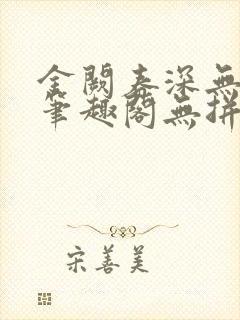 金闕春深無
筆趣閣無拼
宋善美